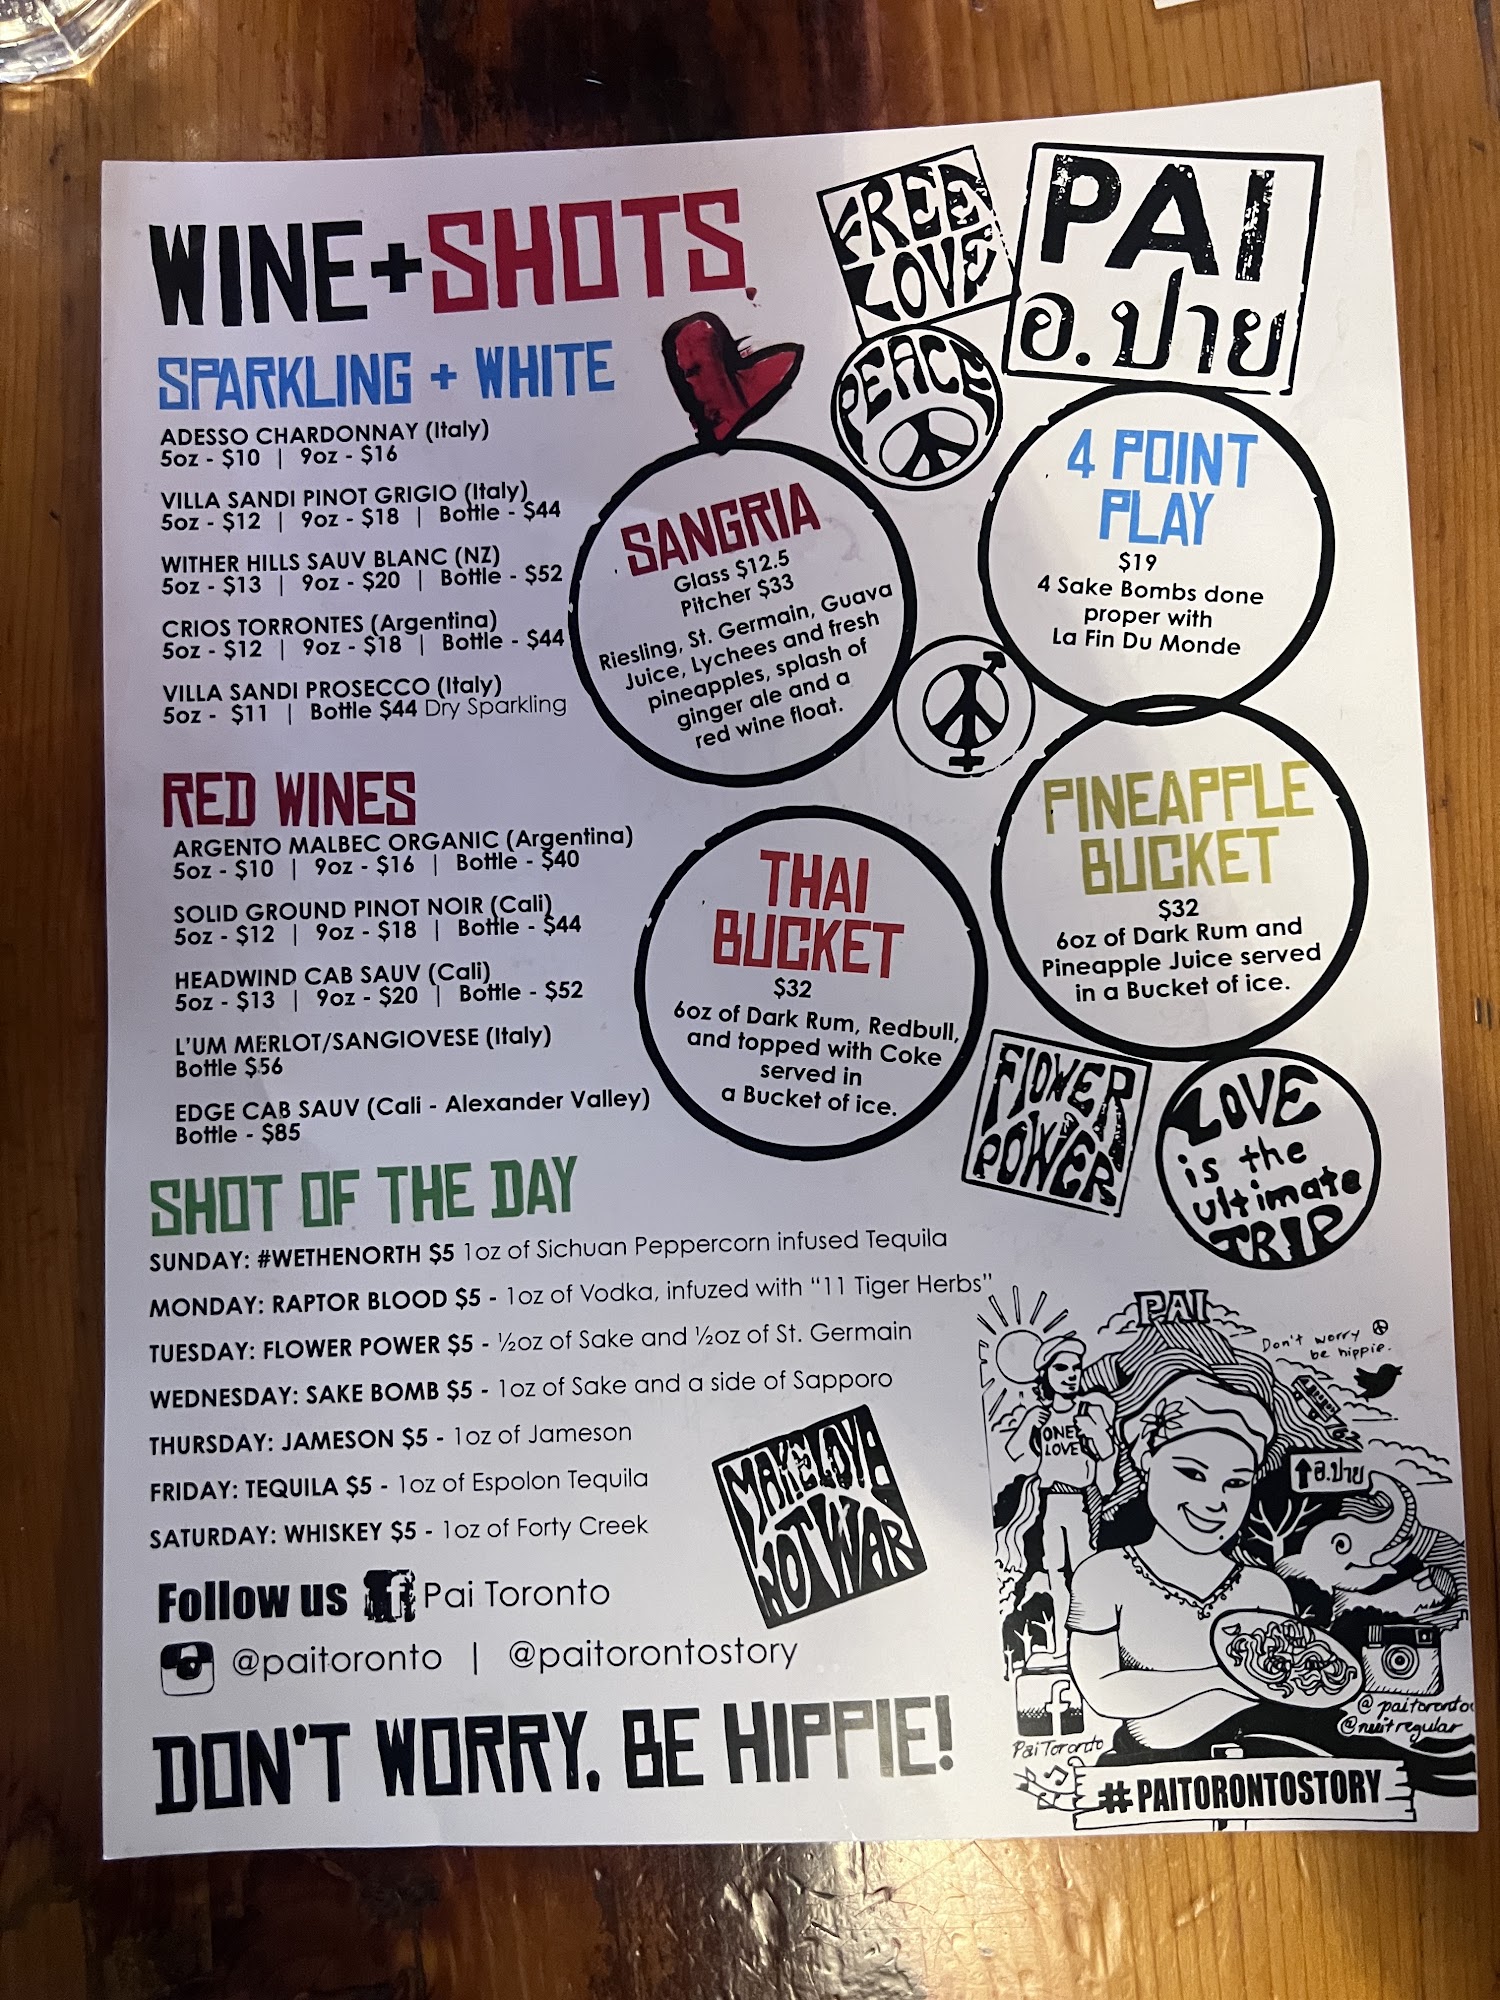 WINE+SHOTS
SPARKLING + WHITE
ADESSO CHARDONNAY (Italy)
5oz - $10 | 9oz - $16
VILLA SANDI PINOT GRIGIO (Italy)
5oz - $12 | 9oz - $18 | Bottle - $44
WITHER HILLS SAUV BLANC (NZ)
5oz - $13 | 9oz - $20 | Bottle - $52
CRIOS TORRONTES (Argentina)
5oz - $12 | 9oz - $18 | Bottle - $44
VILLA SANDI PROSECCO (Italy)
5oz - $11 | Bottle $44 Dry Sparkling
RED WINES
ARGENTO MALBEC ORGANIC (Argentina)
5oz - $10 | 9oz - $16 | Bottle - $40
SOLID GROUND PINOT NOIR (Cali)
5oz - $12 | 9oz - $18 | Bottle - $44
HEADWIND CAB SAUV (Cali)
5oz - $13 | 9oz - $20 | Bottle - $52
L'UM MERLOT/SANGIOVESE (Italy)
Bottle $56
EDGE CAB SAUV (Cali - Alexander Valley)
Bottle - $85
FREE
LOVE
PAI
อ.ปาย
PEACE
SANGRIA
Glass $12.5
Pitcher $33
Riesling, St. Germain, Guava
Juice, Lychees and fresh
pineapples, splash of
ginger ale and a
red wine float.
4 POINT
PLAY
$19
4 Sake Bombs done
proper with
La Fin Du Monde
PINEAPPLE
BUCKET
$32
6oz of Dark Rum and
Pineapple Juice served
in a Bucket of ice.
THAI
BUCKET
$32
6oz of Dark Rum, Redbull,
and topped with Coke
served in
a Bucket of ice.
FLOWER
POWER
LOVE
is the
ultimate
TRIP
SHOT OF THE DAY
SUNDAY: #WETHENORTH $5 1oz of Sichuan Peppercorn infused Tequila
MONDAY: RAPTOR BLOOD $5 - 1oz of Vodka, infuzed with "11 Tiger Herbs"
TUESDAY: FLOWER POWER $5 - ½oz of Sake and ½oz of St. Germain
WEDNESDAY: SAKE BOMB $5 - 1oz of Sake and a side of Sapporo
THURSDAY: JAMESON $5 - 1oz of Jameson
FRIDAY: TEQUILA $5 - 1oz of Espolon Tequila
SATURDAY: WHISKEY $5 - 1oz of Forty Creek
MAKE LOVE
NOT WAR
Follow us f Pai Toronto
@paitoronto | @paitorontostory
DON'T WORRY, BE HIPPIE!
PAI
Don't worry
be hippie.
ONE
LOVE
อ.ปาย
f
Pai Toronto
@paitoronto
@nuitregular
#PAITORONTOSTORY